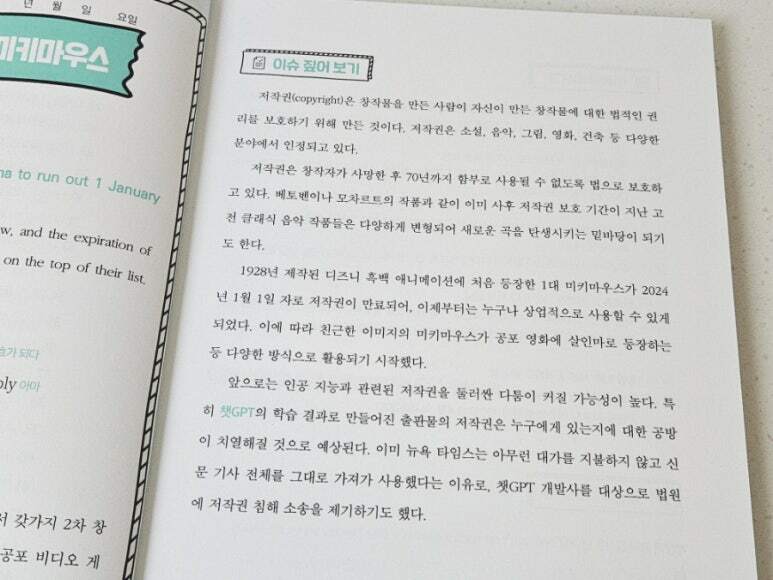 년 월 일 요일
미키마우스
na to run out 1 January
w, and the expiration of
on the top of their list.
효가 되다
oly 아마
서 갖가지 2차 창
공포 비디오 게
이슈 짚어 보기
저작권(copyright)은 창작물을 만든 사람이 자신이 만든 창작물에 대한 법적인 권
리를 보호하기 위해 만든 것이다. 저작권은 소설, 음악, 그림, 영화, 건축 등 다양한
분야에서 인정되고 있다.
저작권은 창작자가 사망한 후 70년까지 함부로 사용될 수 없도록 법으로 보호하
고 있다. 베토벤이나 모차르트의 작품과 같이 이미 사후 저작권 보호 기간이 지난 고
전 클래식 음악 작품들은 다양하게 변형되어 새로운 곡을 탄생시키는 밑바탕이 되기
도 한다.
1928년 제작된 디즈니 흑백 애니메이션에 처음 등장한 1대 미키마우스가 2024
년 1월 1일 자로 저작권이 만료되어, 이제부터는 누구나 상업적으로 사용할 수 있게
되었다. 이에 따라 친근한 이미지의 미키마우스가 공포 영화에 살인마로 등장하는
등 다양한 방식으로 활용되기 시작했다.
앞으로는 인공 지능과 관련된 저작권을 둘러싼 다툼이 커질 가능성이 높다. 특
히 챗GPT의 학습 결과로 만들어진 출판물의 저작권은 누구에게 있는지에 대한 공방
이 치열해질 것으로 예상된다. 이미 뉴욕 타임스는 아무런 대가를 지불하지 않고 신
문 기사 전체를 그대로 가져가 사용했다는 이유로, 챗GPT 개발사를 대상으로 법원
에 저작권 침해 소송을 제기하기도 했다.